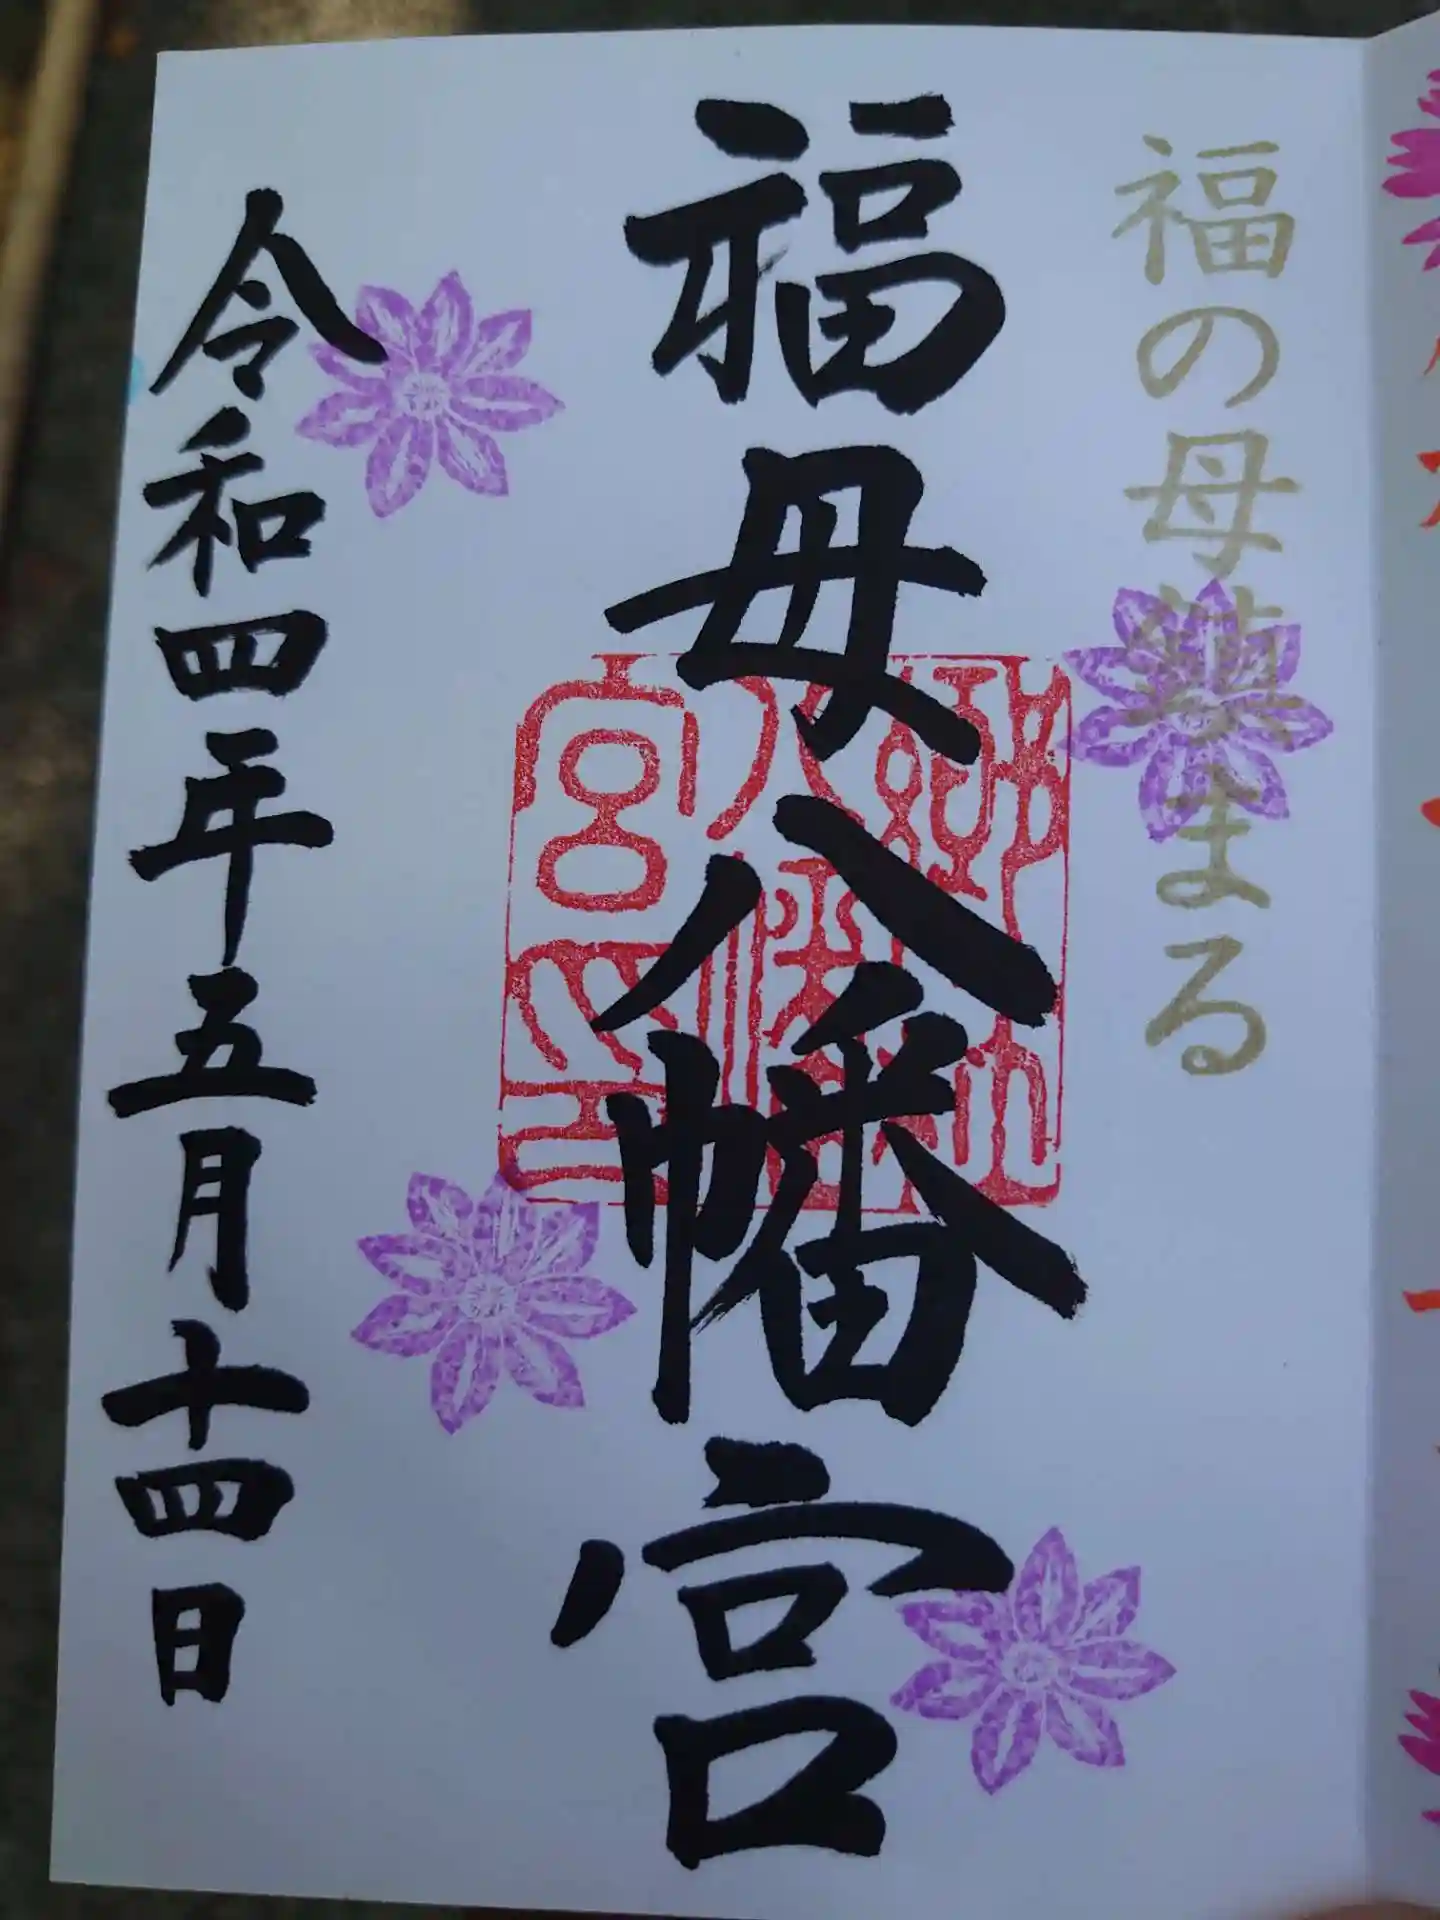 福の母鎮まる
福母八幡宮
令和四年五月十四日